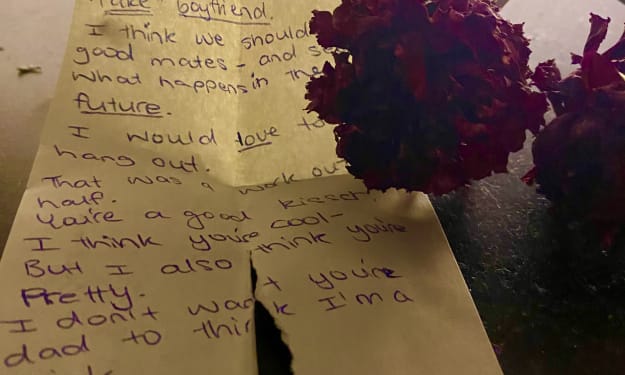 "Fake" boyfriend.
I think we should
good mates - and s
what happens in the
future.
I would love to
hang out.
That was a work ou
half.
You're a good kisser.
I think you're cool -
But I also think you're
Pretty.
I don't want you're
dad to think I'm a